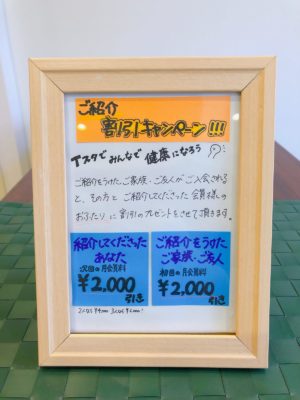 ご紹介
割引キャンペーン!!!
Tスタでみんなで健康になろう
ご紹介をうけたご家族・ご友人がご入会される
と、その方と ご紹介してくださった 会員様の
おふたりに 割引のプレゼントをさせて頂きます。
紹介してくださった
あなた
次回の月会費料
¥2,000
引き
ご紹介をうけた
ご家族・ご友人
初回の月会費料
¥2,000
引き